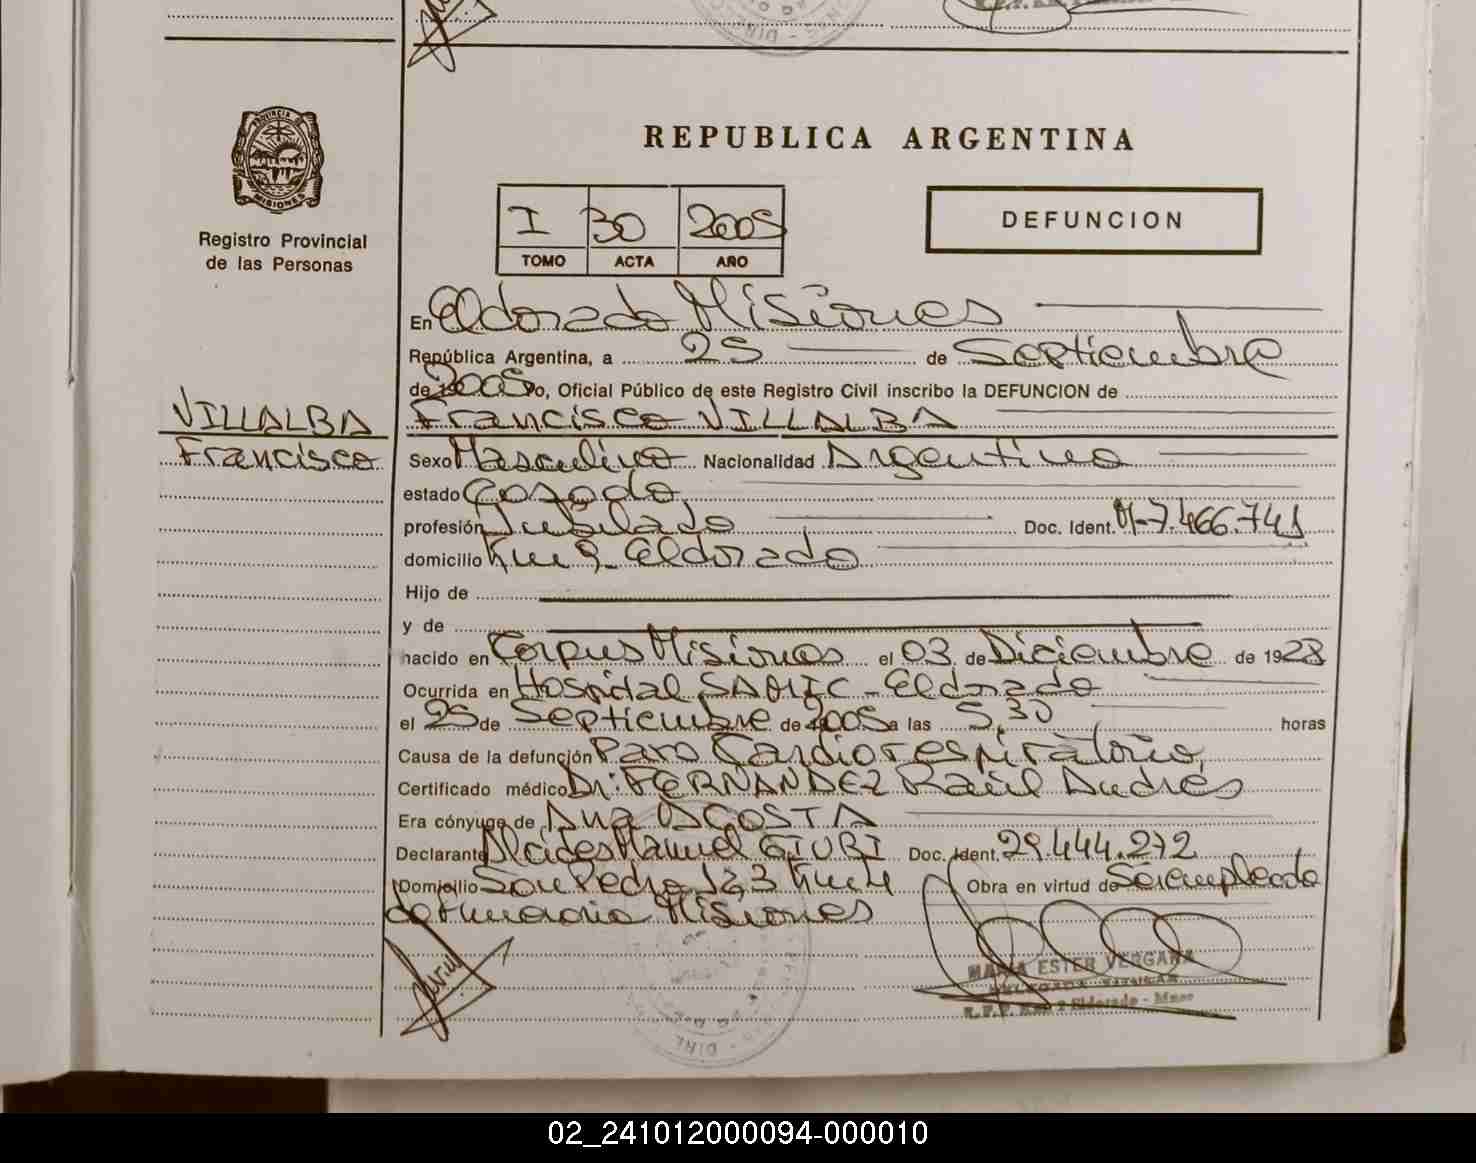 REPUBLICA ARGENTINA
PROVINCIA D
MISIONES
Registro Provincial
de las Personas
I 30 2005
TOMO ACTA AÑO
DEFUNCION
En Eldorado Misiones
República Argentina, a 25 de Septiembre
de 2005 yo, Oficial Público de este Registro Civil inscribo la DEFUNCION de
VILLALBA
Francisco
Francisco VILLALBA
Sexo Masculino Nacionalidad Argentino
estado Casado
profesión Jubilado Doc. Ident. M-7.466.741
domicilio Km 9 Eldorado
Hijo de
y de
nacido en Corpus Misiones el 03 de Diciembre de 1928
Ocurrida en Hospital SAMIC - Eldorado
el 25 de Septiembre de 2005 a las 5,30 horas
Causa de la defunción Paro Cardiorespiratorio,
Certificado médico Dr: FERNANDEZ Raúl Andrés
Era cónyuge de Ana ACOSTA
Declarante Alcides Manuel Doc. Ident. 29.444.272
Domicilio San Pedro 123 Km 4 Obra en virtud de Ser empleado
de Funeraria Misiones
MARIA ESTER VERGARA
DELEGADA TITULAR
Eldorado - Mnes
02_241012000094-000010